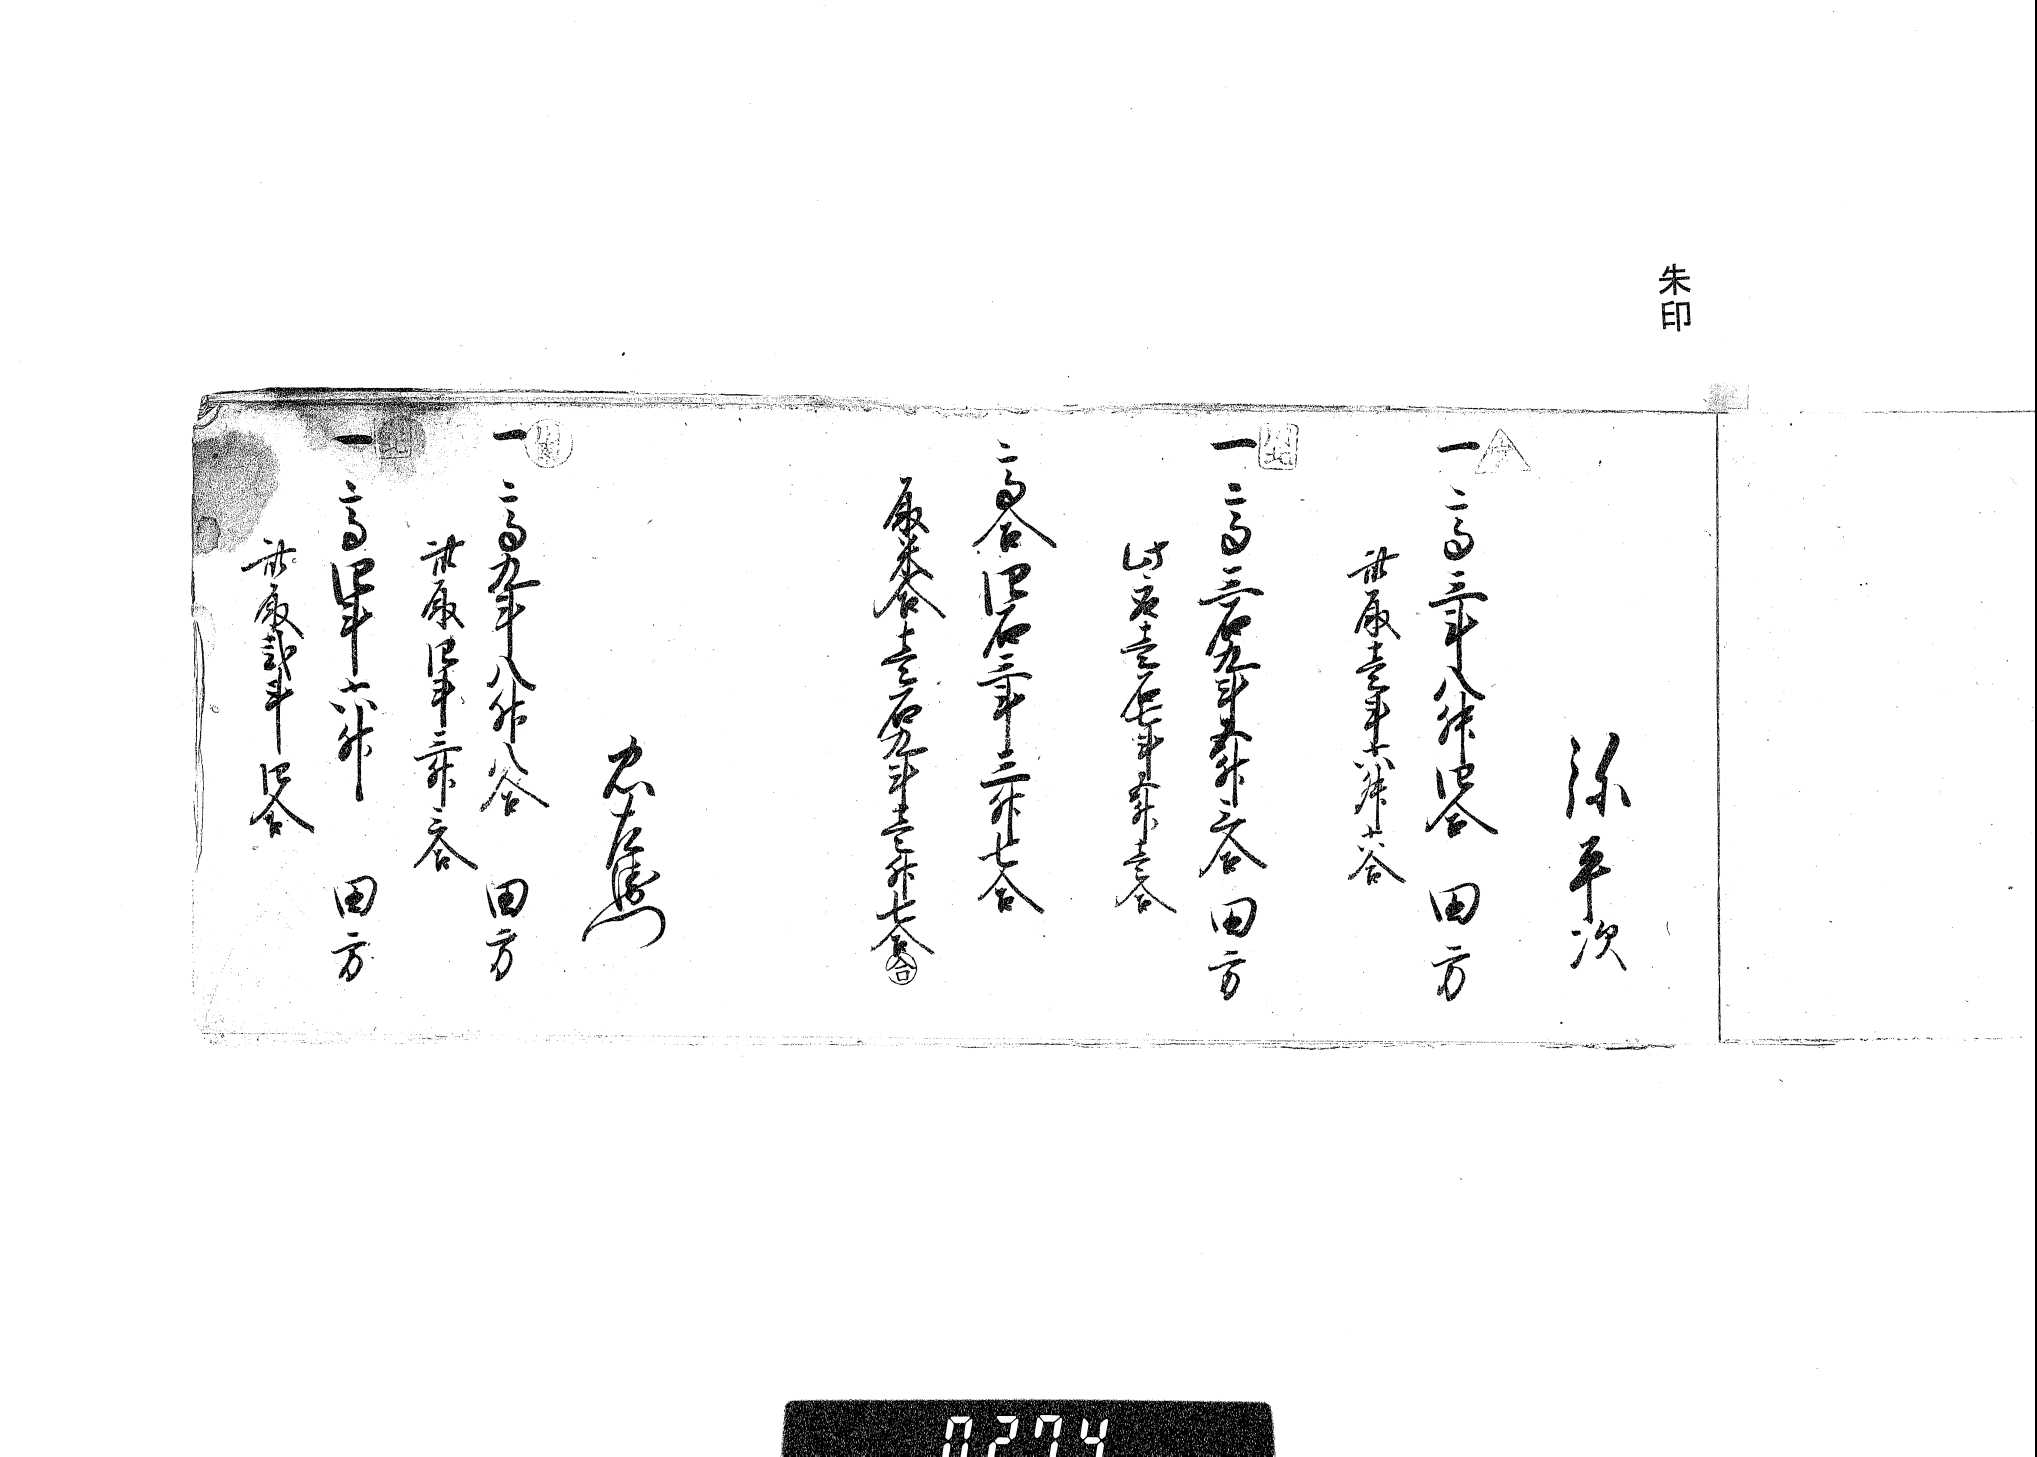 朱印
弥平次
一 高三斗八升四合 田方
此取壱斗六升六合
一 高三石九斗五升三合 田方
此取壱石七斗五升壱合
高合四石三斗三升七合
取米合壱石九斗壱升七合
合
忠左衛門
一 高九斗八升八合 田方
此取四斗三升二合
一 高四斗六升 田方
此取弐斗四合
0274